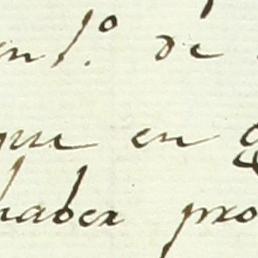 en 1.º de
que en
haber pro